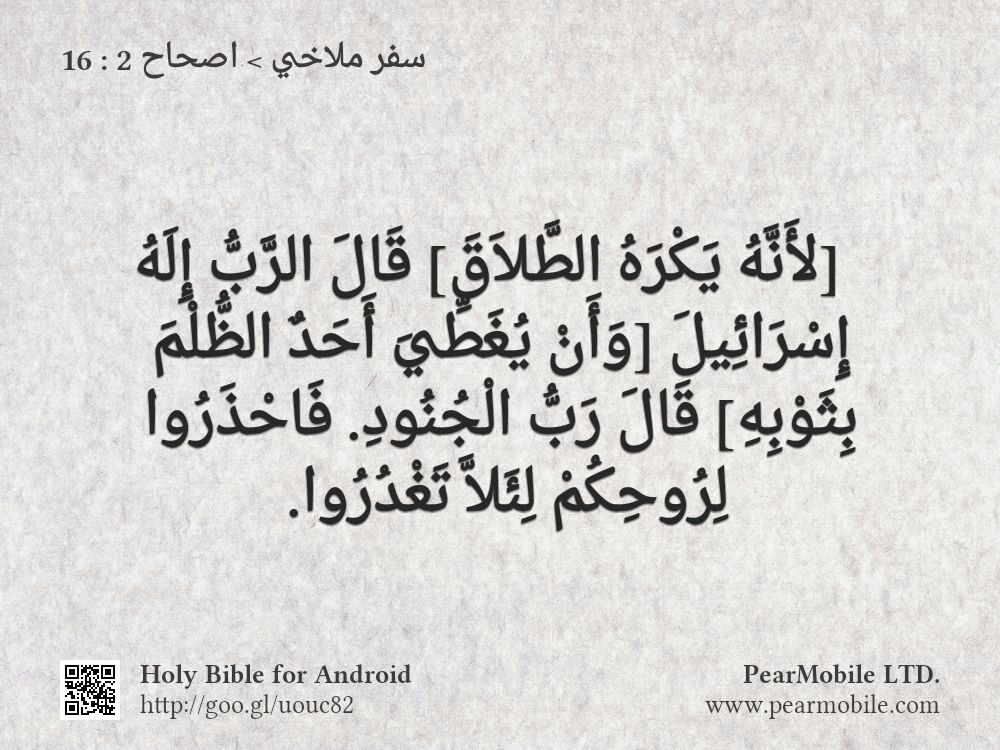 سفر ملاخي > اصحاح 2 : 16
[لأَنَّهُ يَكْرَهُ الطَّلاَقَ] قَالَ الرَّبُّ إِلَهُ
إِسْرَائِيلَ [وَأَنْ يُغَطِّيَ أَحَدٌ الظُّلْمَ
بِثَوْبِهِ] قَالَ رَبُّ الْجُنُودِ. فَاحْذَرُوا
لِرُوحِكُمْ لِئَلاَّ تَغْدُرُوا.
Holy Bible for Android
http://goo.gl/uouc82
PearMobile LTD.
www.pearmobile.com